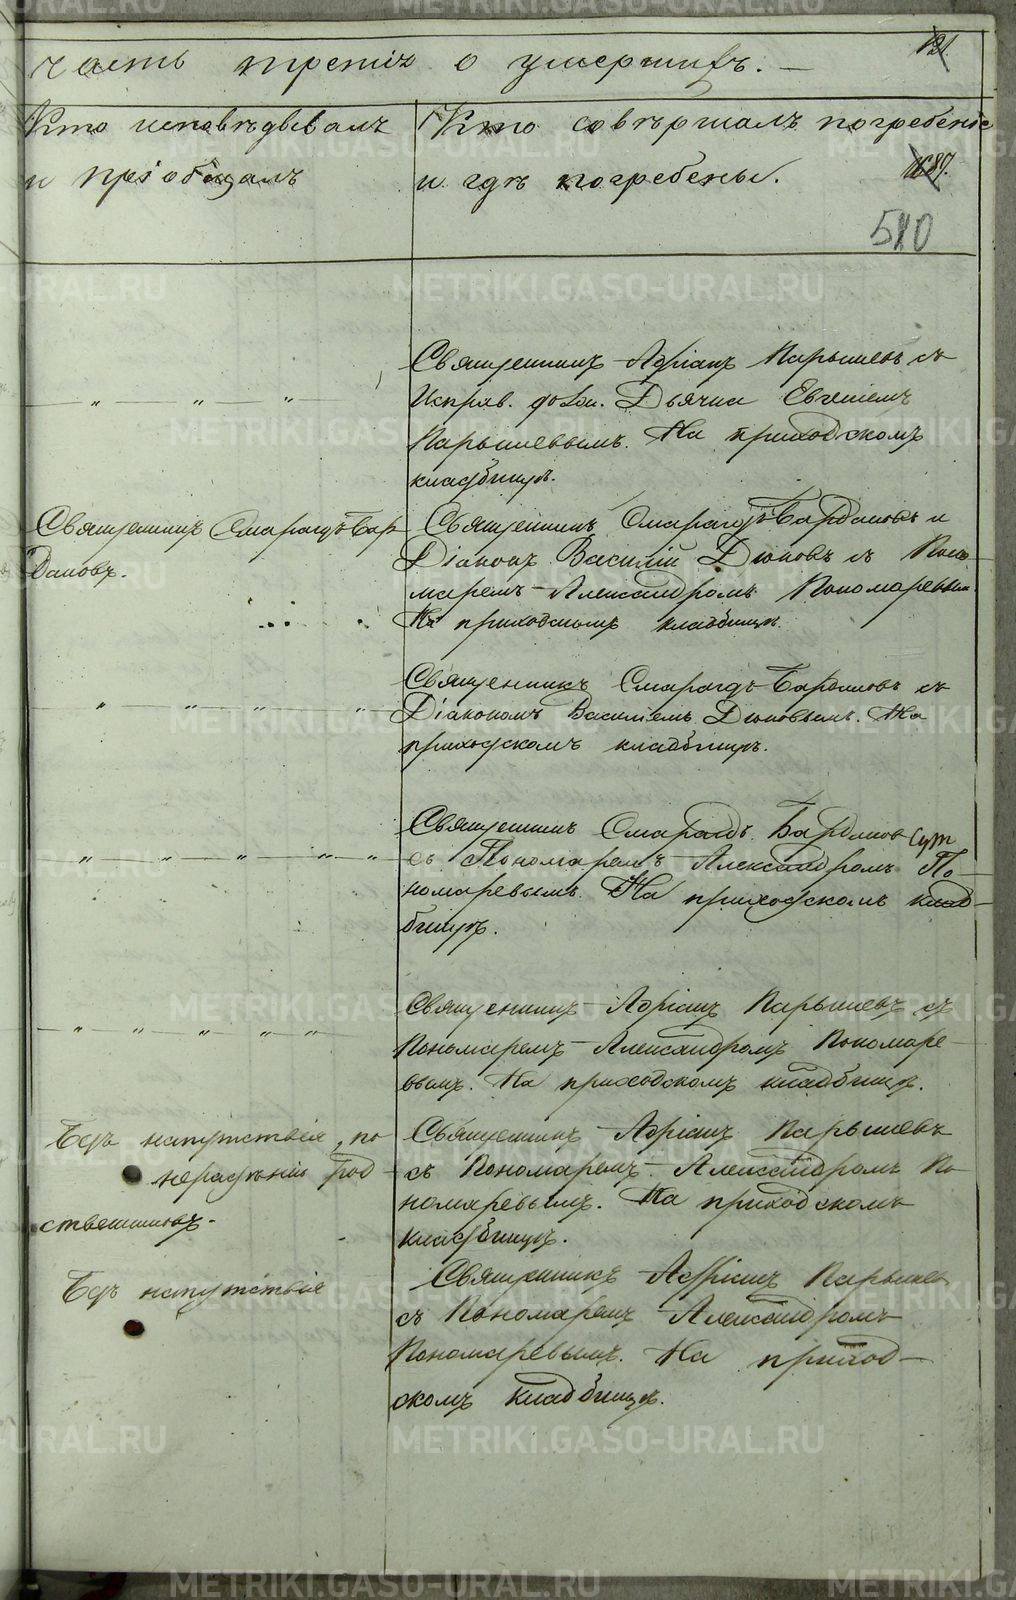 часть третія о умершихъ.
121.
Кто исповѣдывалъ
и пріобщалъ
Кто совѣршалъ погребеніе
и гдѣ погребены.
1687.
510
Священникъ Адріанъ Парышевъ съ
Исправ. долж. Дьячка Евгеніемъ
Парышевымъ. На приходскомъ
кладбищѣ.
Священникъ Смарагдъ Бар
даковъ.
Священникъ Смарагдъ Бардаковъ и
Діаконъ Василій Дюковъ съ Поно-
маремъ Александромъ Пономаревым.
На приходскомъ кладбищѣ.
Священникъ Смарагдъ Бардаковъ съ
Діакономъ Василіемъ Дюковымъ. На
приходскомъ кладбищѣ.
Священникъ Смарагдъ Бардаковъ
съ Пономаремъ Александромъ По-
номаревымъ. На приходскомъ клад-
бищѣ.
Священникъ Адріанъ Парышевъ съ
Пономаремъ Александромъ Пономаре-
вымъ. На приходскомъ кладбищѣ.
Безъ напутствія, по
нерадѣнію род
ственниковъ.
Священникъ Адріанъ Парышевъ
съ Пономаремъ Александромъ По
номаревымъ. На приходскомъ
кладбищѣ.
Безъ напутствія
Священникъ Адріанъ Парышев
съ Пономаремъ Александромъ
Пономаревымъ. На приход-
скомъ кладбищѣ.
METRIKI.GASO-URAL.RU